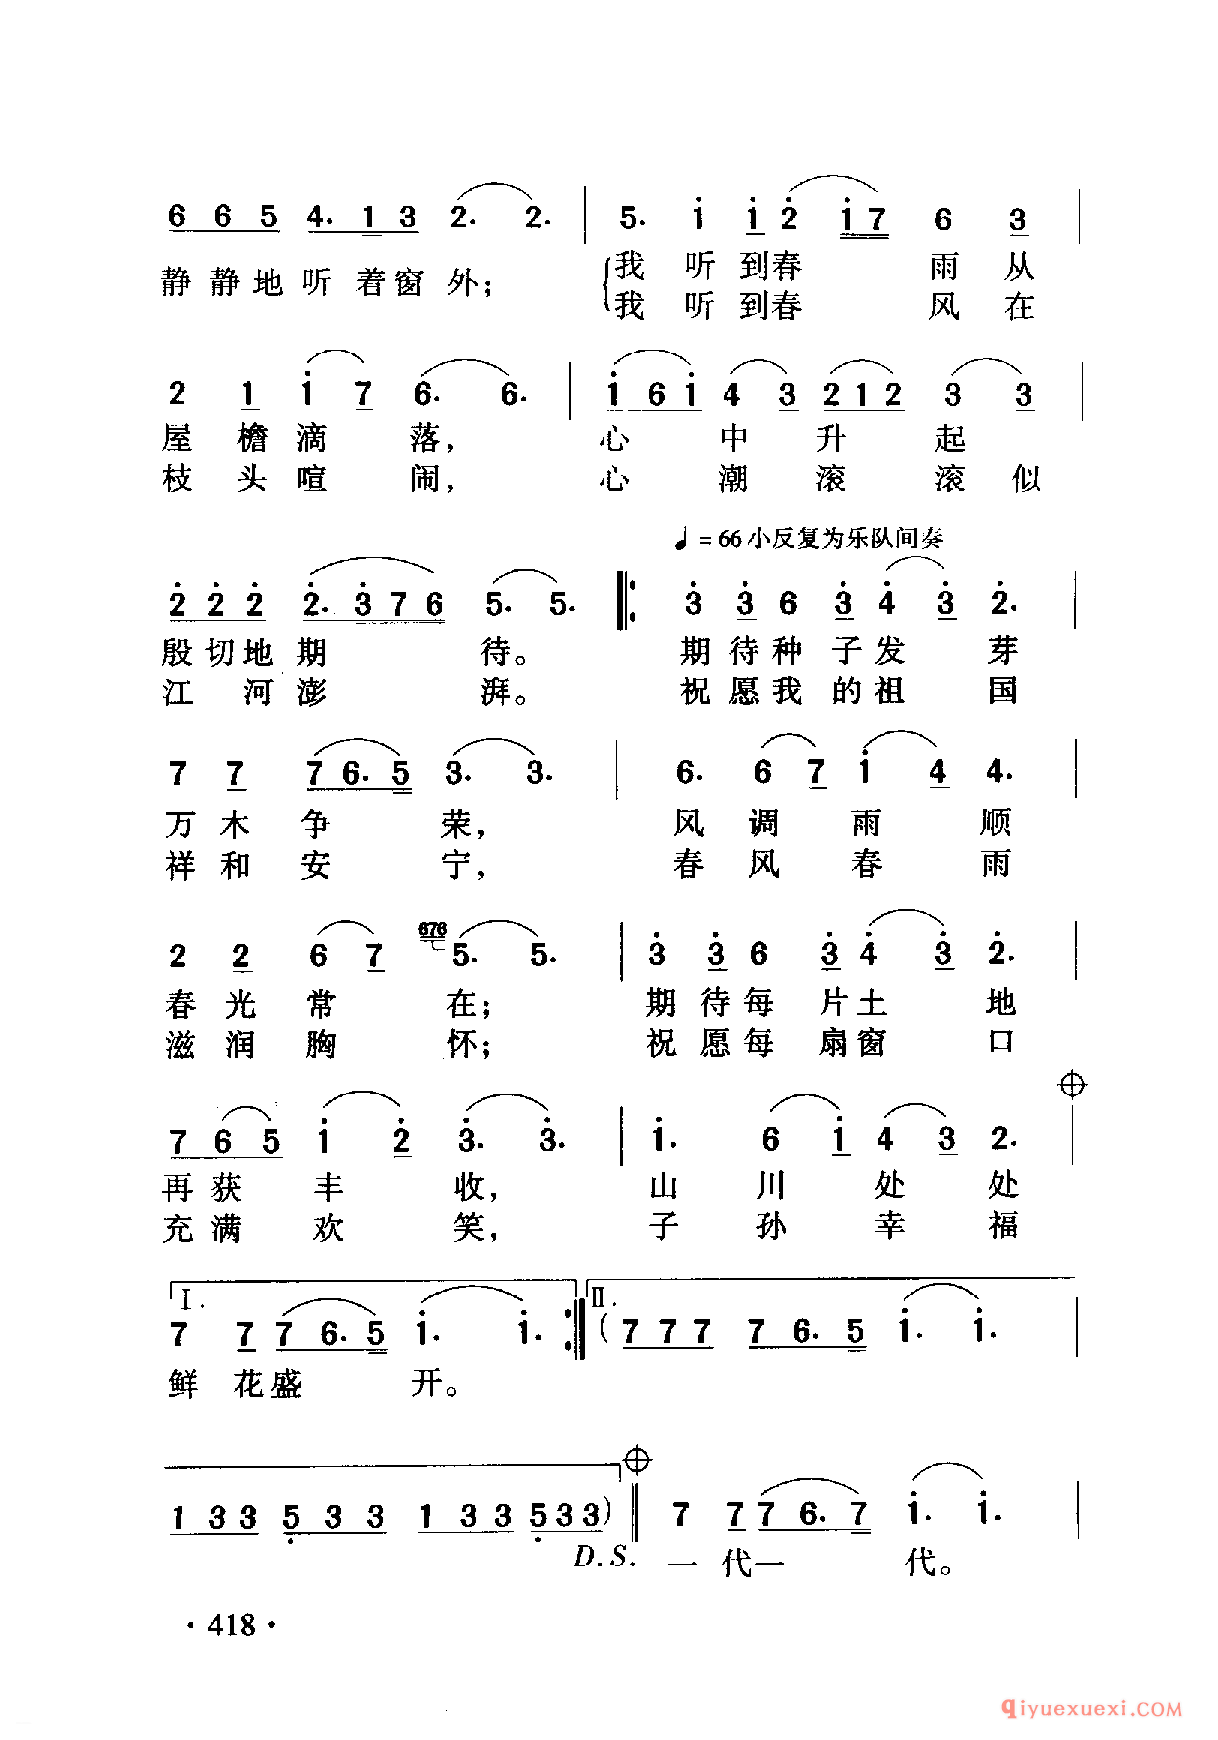 6 6 5 4. 1 3 2. 2. | 5. i i 2 i 7 6 3 |
静静地听着窗外； 我听到春雨从
我听到春风在
2 1 i 7 6. 6. | i 6 i 4 3 2 1 2 3 3 |
屋檐滴落， 心中升起
枝头喧闹， 心潮滚滚似
♩=66 小反复为乐队间奏
2 2 2 2. 3 7 6 5. 5. ‖: 3 3 6 3 4 3 2. |
殷切地期待。 期待种子发芽
江河澎湃。 祝愿我的祖国
7 7 7 6. 5 3. 3. | 6. 6 7 i 4 4. |
万木争荣， 风调雨顺
祥和安宁， 春风春雨
2 2 6 7 676 5. 5. | 3 3 6 3 4 3 2. |
春光常在； 期待每片土地
滋润胸怀； 祝愿每扇窗口
7 6 5 i 2 3. 3. | i. 6 i 4 3 2. |
再获丰收， 山川处处
充满欢笑， 子孙幸福
I. II.
7 7 7 6. 5 i. i. :‖ (7 7 7 7 6. 5 i. i. |
鲜花盛开。
1 3 3 5 3 3 1 3 3 5 3 3) ‖ 7 7 7 6. 7 i. i. |
D.S. 一代一代。
·418·
qiyuexuexi.COM